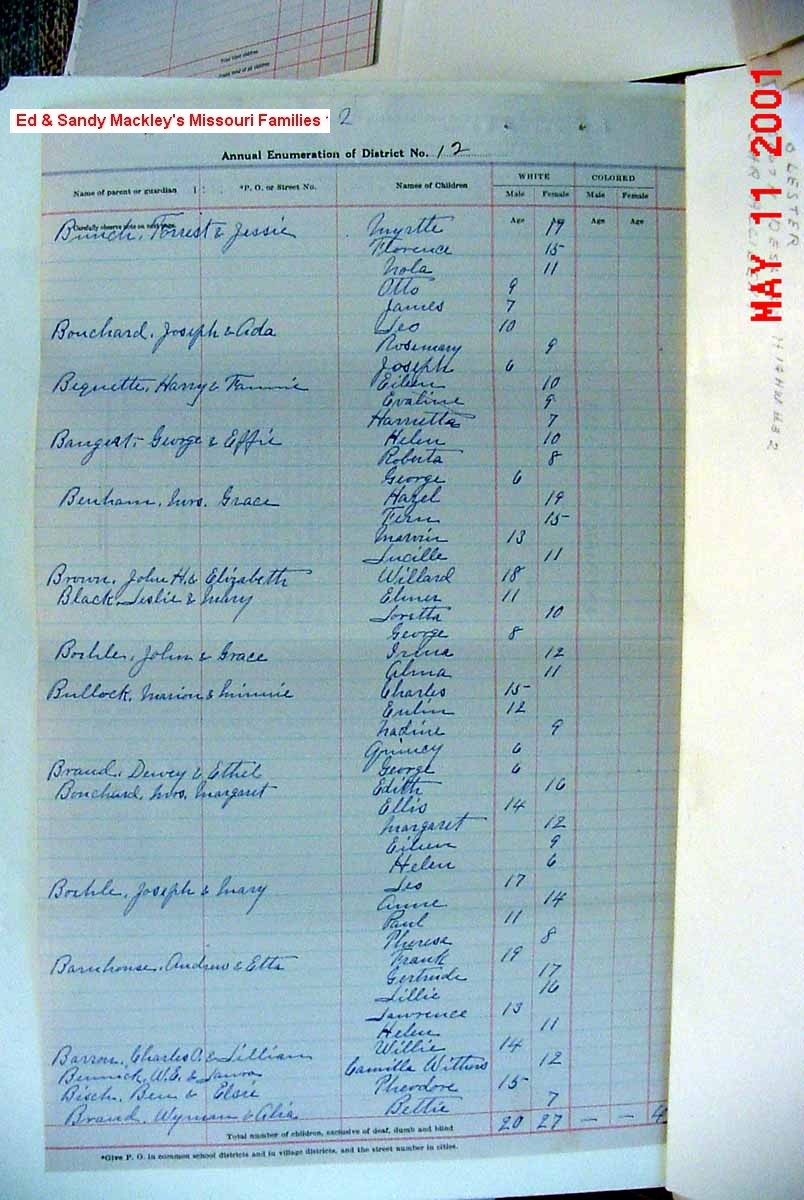 Total blind children
Grand total of all children
Ed & Sandy Mackley's Missouri Families
2
Annual Enumeration of District No. 12
Name of parent or guardian *P. O. or Street No. Names of Children WHITE COLORED
Male Female Male Female
Carefully observe note on next page. Age Age Age
Bunch, Forrest & Jessie Myrtle 17
Florence 15
Nola 11
Otto 9
James 7
Bouchard, Joseph & Ada Leo 10
Rosemary 9
Joseph 6
Bequette, Harry & Fannie Eileen 10
Evaline 9
Harrietta 7
Bangert, George & Effie Helen 10
Roberta 8
George 6
Benham, Mrs. Grace Hazel 19
Fern 15
Marvin 13
Lucille 11
Brown, John H. & Elizabeth Willard 18
Black, Leslie & Mary Elmer 11
Loretta 10
George 8
Boehle, John & Grace Irma 12
Alma 11
Bullock, Marion & Minnie Charles 15
12
Nadine 9
Quincy 6
Brand, Dewey & Ethel George 6
Bouchard, Mrs. Margaret Edith 16
Ellis 14
Margaret 12
Eileen 9
Helen 6
Boehle, Joseph & Mary Leo 17
Anne 14
Paul 11
Theresa 8
Barnhouse, Andrew & Etta Frank 19
Gertrude 17
Lillie 16
Lawrence 13
Helen 11
Barron, Charles A. & Lillian Willie 14
Bennick, W.E. & Laura Camilla Withers 12
Bisch, Ben & Elsie Theodore 15
Brand, Wyman & Bettie 7
Total number of children, exclusive of deaf, dumb and blind 20 27 — — 4
*Give P. O. in common school districts and in village districts, and the street number in cities.
MAY 11 2001
LESTER